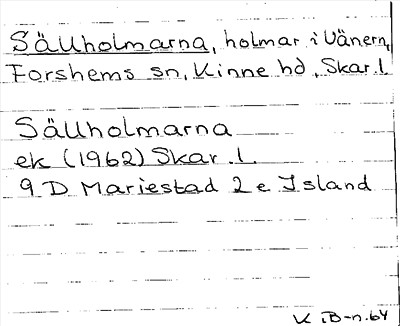 Sällholmarna, holmar i Vänern,
Forshems sn, Kinne hd, Skar.l.
Sällholmarna
ek (1962) Skar.l.
9 D Mariestad 2 e Island
K iB-n.64